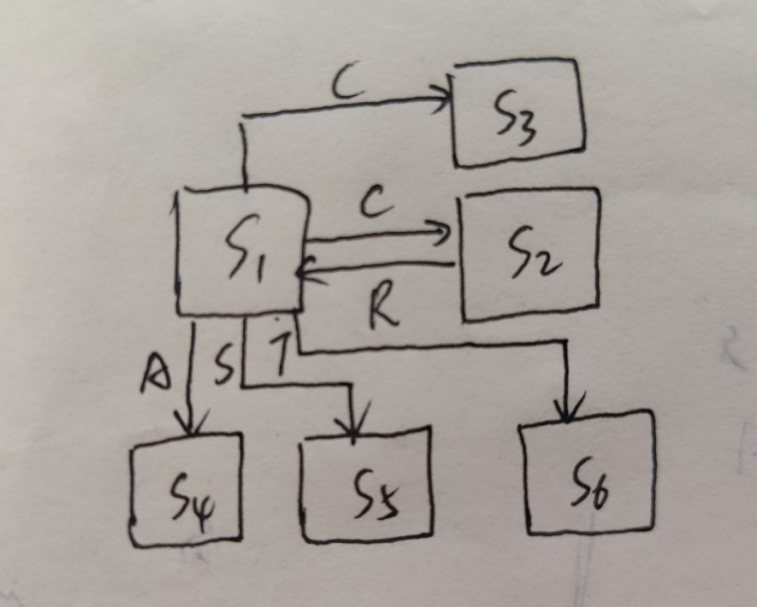 C
S3
C
S1
S2
R
A S T
S4 S5 S6